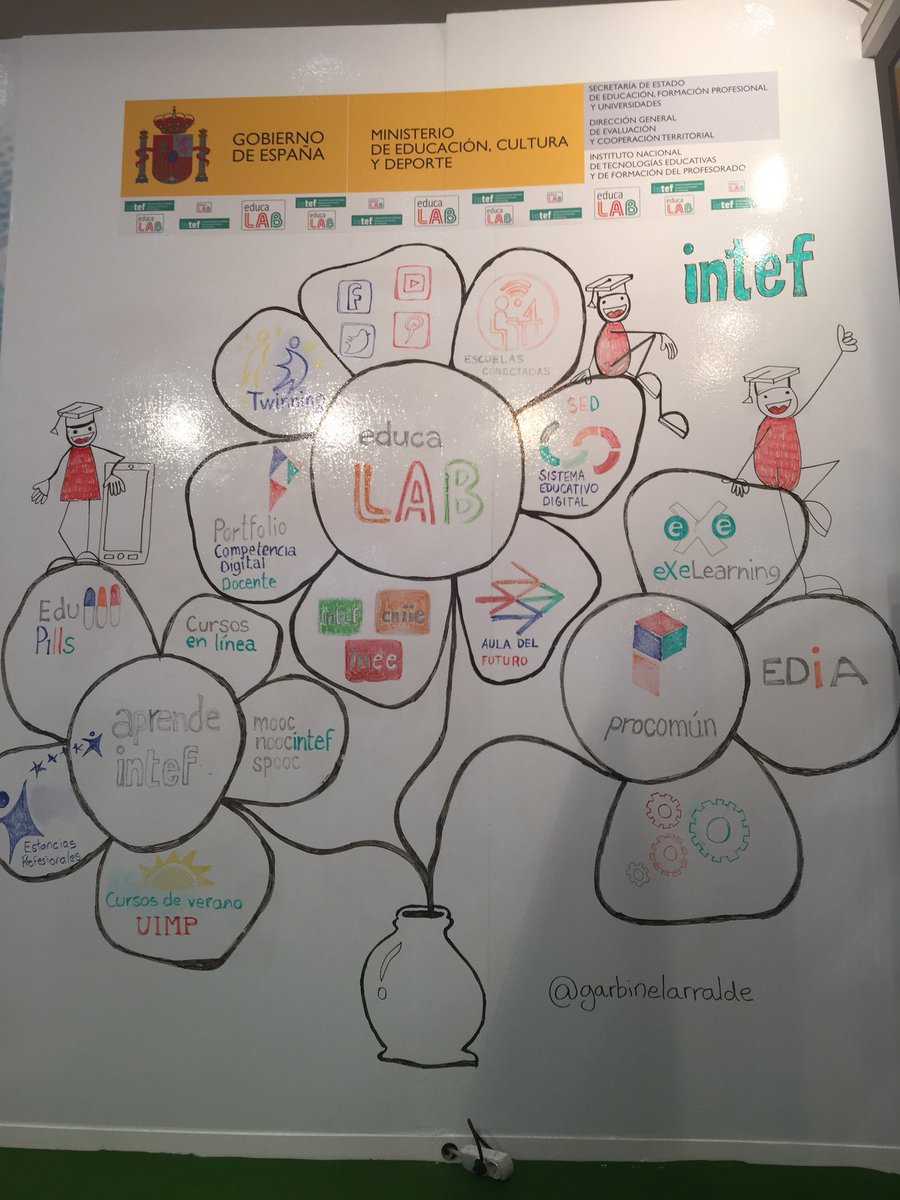 GOBIERNO
DE ESPAÑA
MINISTERIO
DE EDUCACIÓN, CULTURA
Y DEPORTE
SECRETARÍA DE ESTADO
DE EDUCACIÓN, FORMACIÓN PROFESIONAL
Y UNIVERSIDADES
DIRECCIÓN GENERAL
DE EVALUACIÓN
Y COOPERACIÓN TERRITORIAL
INSTITUTO NACIONAL
DE TECNOLOGÍAS EDUCATIVAS
Y DE FORMACIÓN DEL PROFESORADO
educa
LAB
intef
educa
LAB
intef
educa
LAB
intef
educa
LAB
intef
educa
LAB
intef
educa
LAB
intef
educa
LAB
intef
intef
ESCUELAS
CONECTADAS
Twinning
educa
LAB
SED
SISTEMA
EDUCATIVO
DIGITAL
Portfolio
Competencia
Digital
Docente
intef
cniie
inee
AULA DEL
FUTURO
exe
eXeLearning
procomún
EDiA
Edu
Pills
Cursos
en línea
aprende
intef
mooc
noocintef
spooc
Estancias
Profesionales
Cursos de verano
UIMP
@garbinelarralde